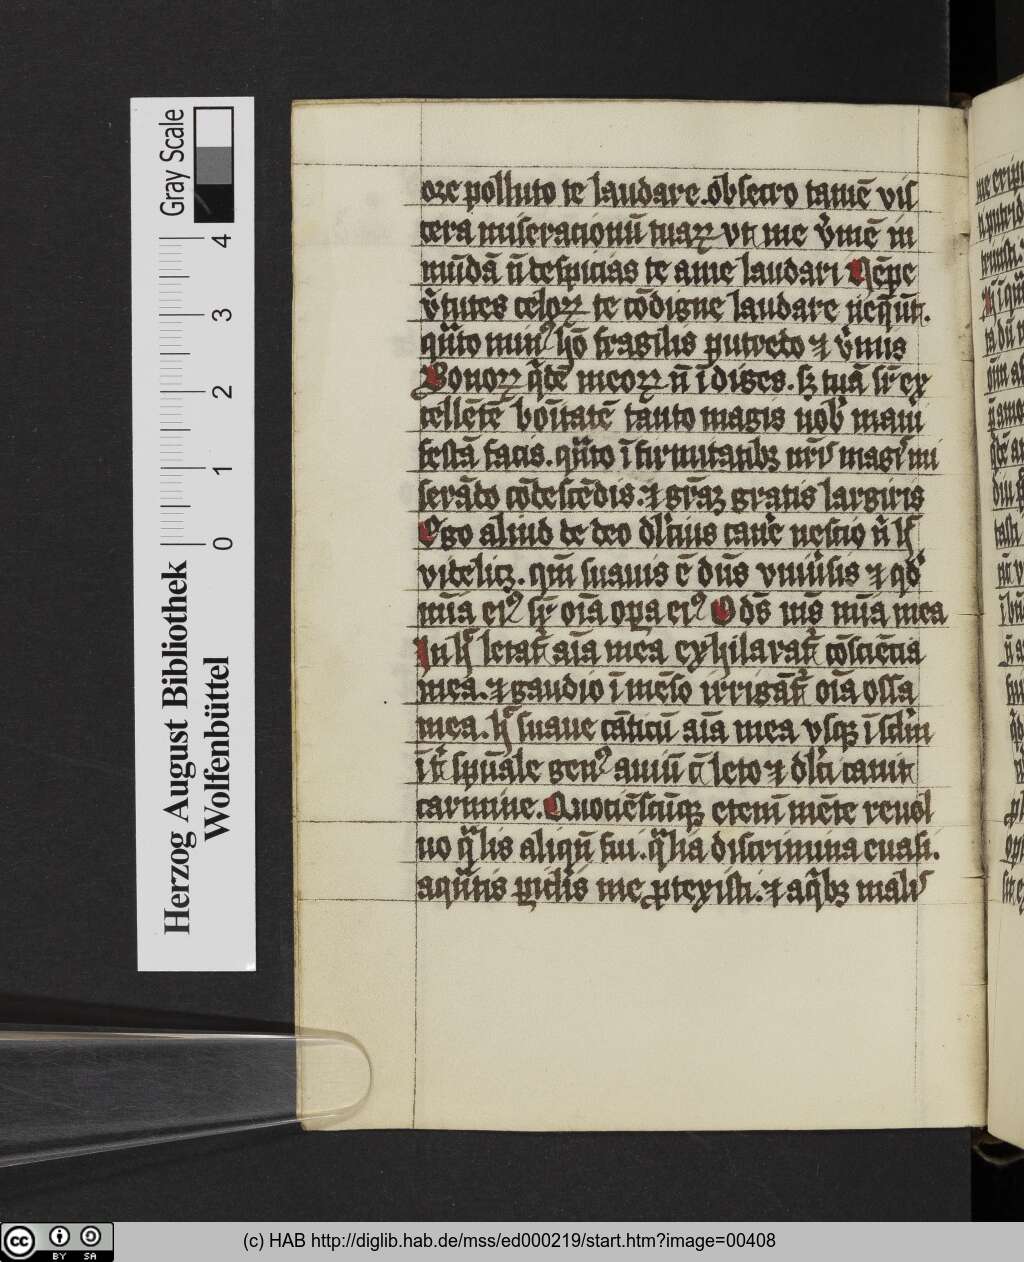 Gray Scale
4
3
2
1
0
Herzog August Bibliothek
Wolfenbüttel
ore polluto te laudare. obsecro tamē vis
cera miseracionū tuaꝝ vt me v̓mē in
mūdā n̄ despicias te a me laudari Nēpe
v̓tutes celoꝝ te cōdigne laudare neq̄ūt.
qͣto minꝰ hō fragilis putredo ⁊ v̓mis
Bonoꝝ q̓dē meoꝝ n̄ īdiges. sꝫ tuā sr̄ ex
cellētē bōitatē tanto magis nob̓ mani
festā facis. qͣto ī firmitatibꝫ nr̄is magͥ mi
serādo cōdescēdis. ⁊ gr̄aꝫ gratis largiris
Ego aliud de deo dl̓cius cane̓ nescio n̄ hͦ
videlicꝫ. qm̄ suauis ē dn̄s vniu̓sis ⁊ qd̓
mīa eiꝰ sr̄ oīa opa eiꝰ O ds̄ ms̄ mīa mea
In hͦ letat̓ aīa mea exhilarat̓ cōsciēcia
mea. ⁊ gaudio īmēso irrigāt̓ oīa ossa
mea. hͦ suaue cāticū aīa mea vsqꝫ ī
īt̓ spūale genꝰ auiū c̄ leto ⁊ dl̓ci canit
carmine. Quociēscūqꝫ etenī mēte reuol
uo qͣlis aliqn̄ fui. qͣlia discrimina euasi.
aqͣntis picl̓is me ꝓtexisti. ⁊ aq̓bꝫ malis
(c) HAB http://diglib.hab.de/mss/ed000219/start.htm?image=00408
cc BY SA